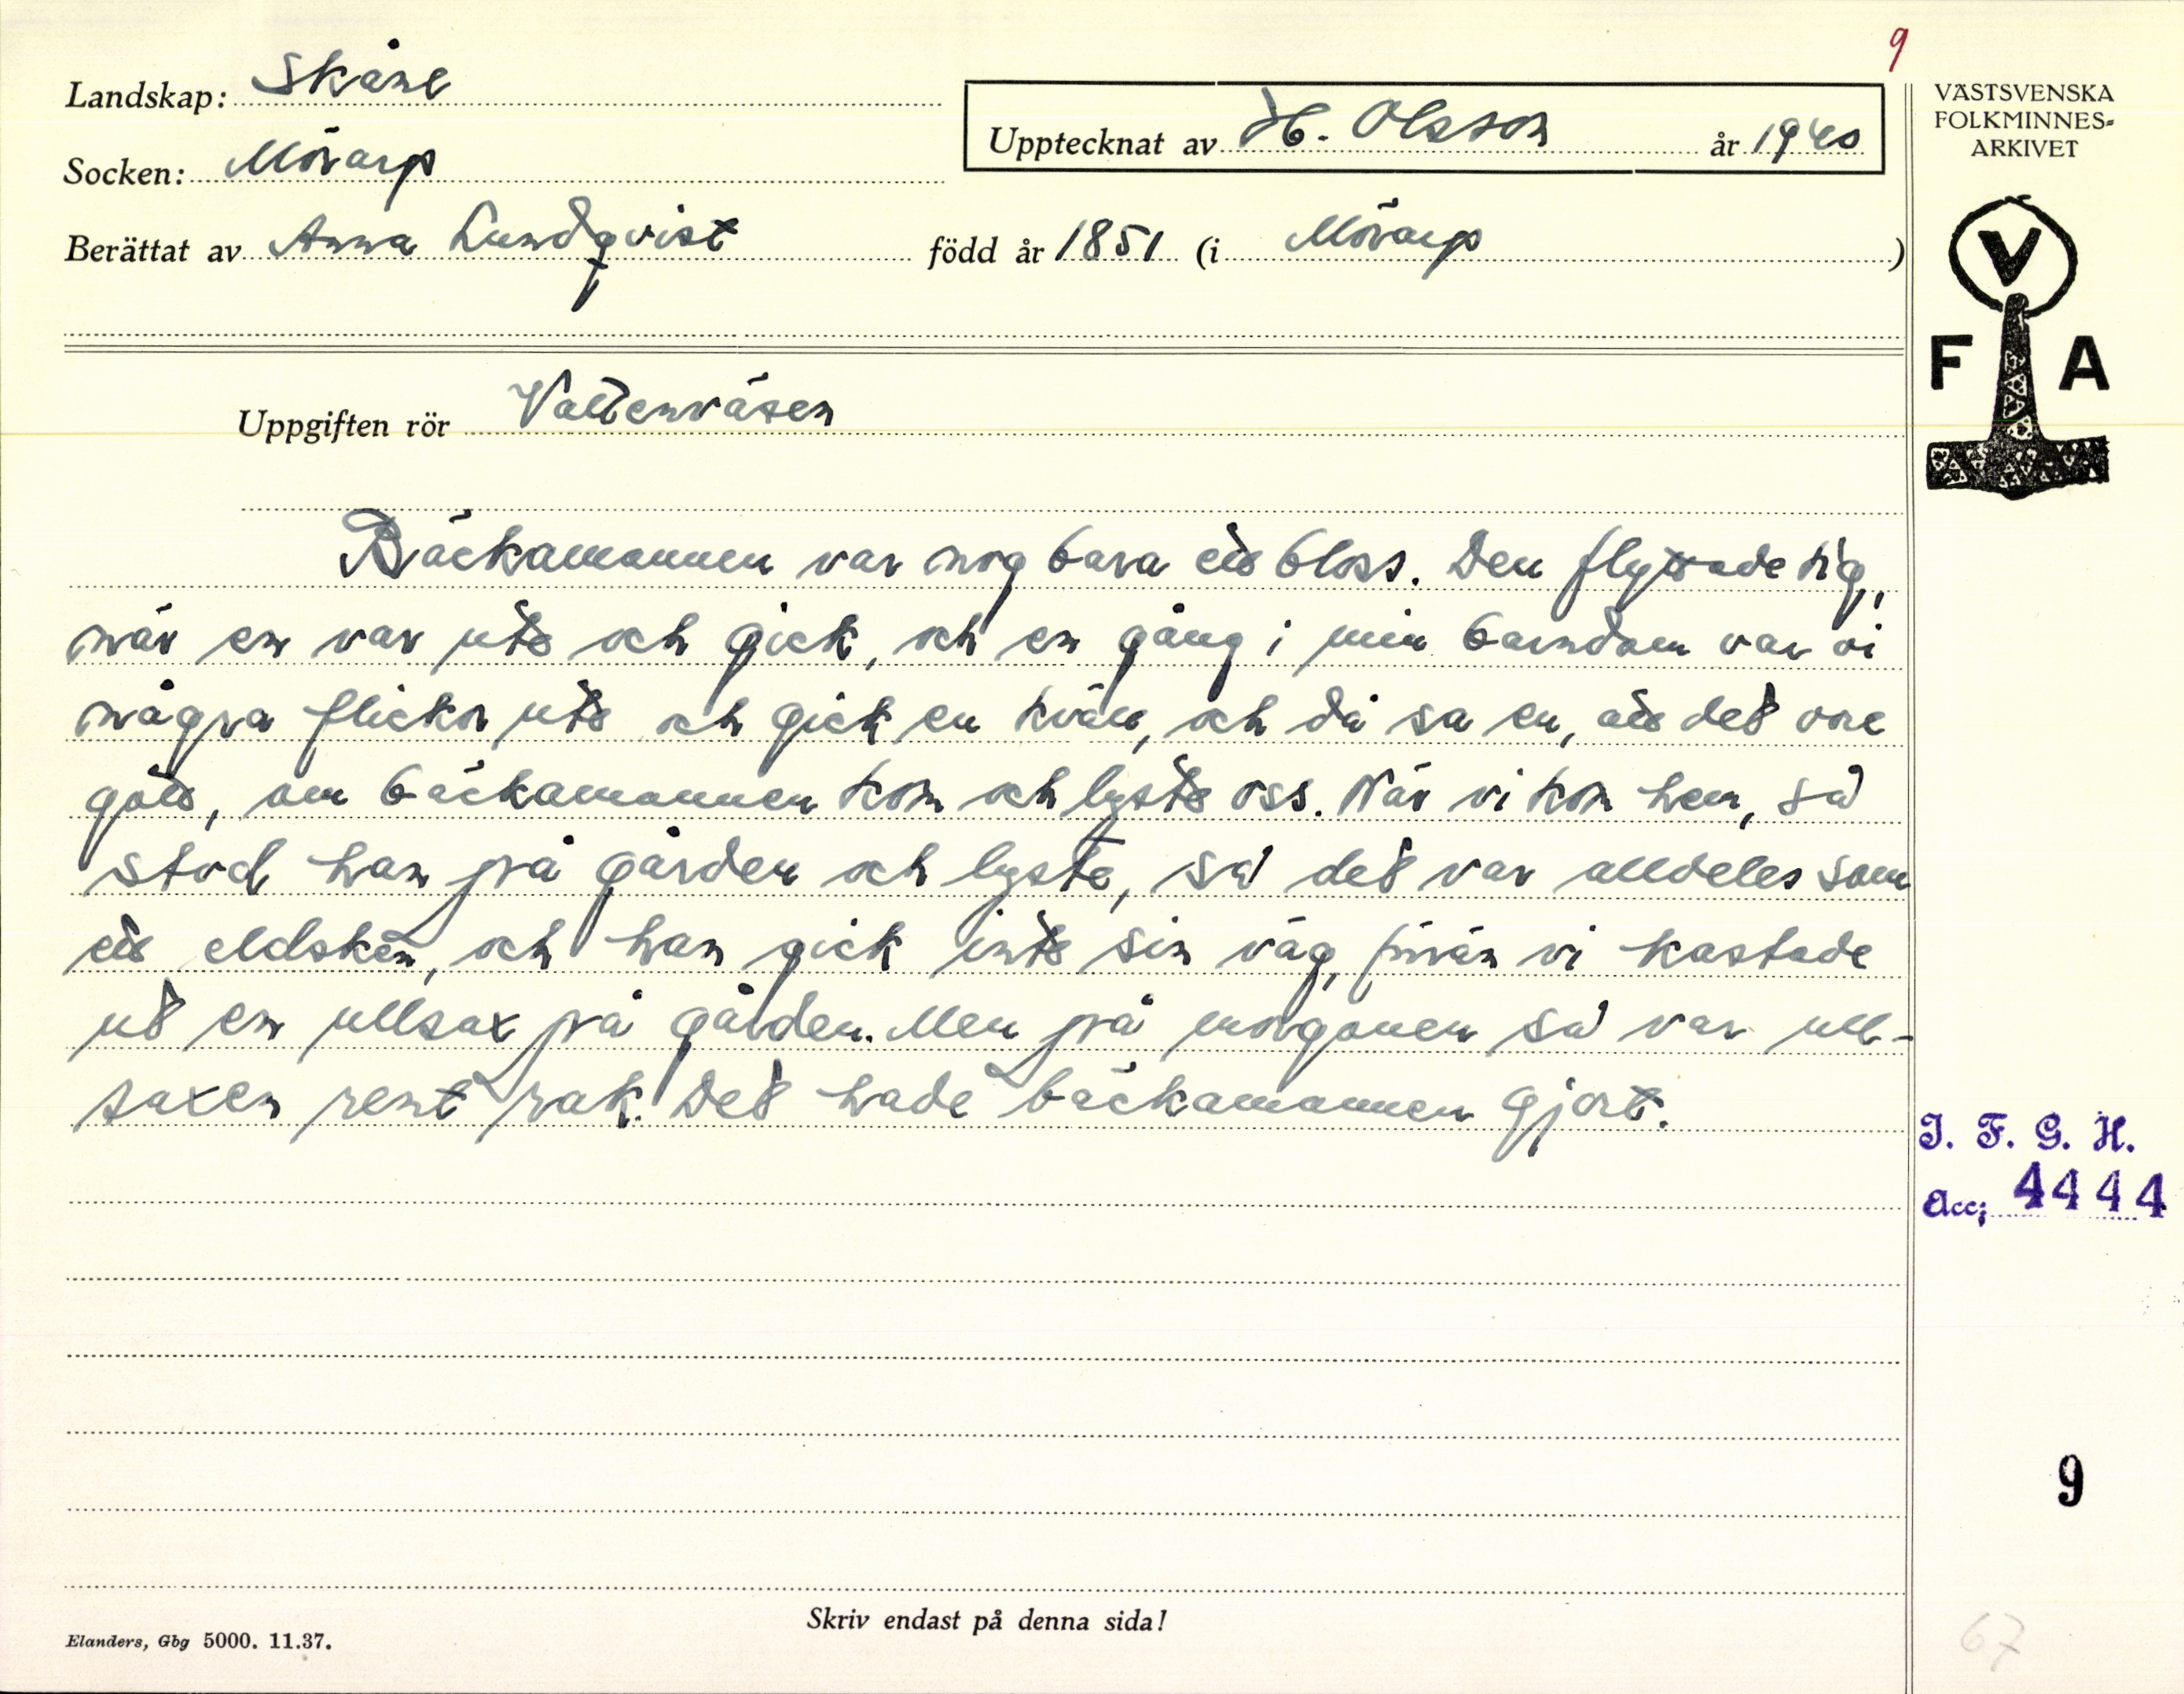 9
Landskap: Skåne
Upptecknat av H. Olsson år 1940
VÄSTSVENSKA
FOLKMINNES-
ARKIVET
Socken: Mörarp
Berättat av Anna Lundqvist född år 1851 (i Mörarp)
V
F A
Uppgiften rör Vattenväsen
Bäckamannen var nog bara ett bloss. Den flyttade sig,
när en var ute och gick, och en gång i min barndom var vi
några flickor ute och gick en kväll, och då sa en, att det vore
gott, om bäckamannen kom och lyste oss. När vi kom hem, så
stod han på gården och lyste, så det var alldeles som
ett eldsken, och han gick inte sin väg, förrän vi kastade
ut en ullsax på gården. Men på morgonen så var ull-
saxen rent rak. Det hade bäckamannen gjort.
I. F. G. H.
Acc; 4444
9
Skriv endast på denna sida!
Elanders, Gbg 5000. 11.37.
67